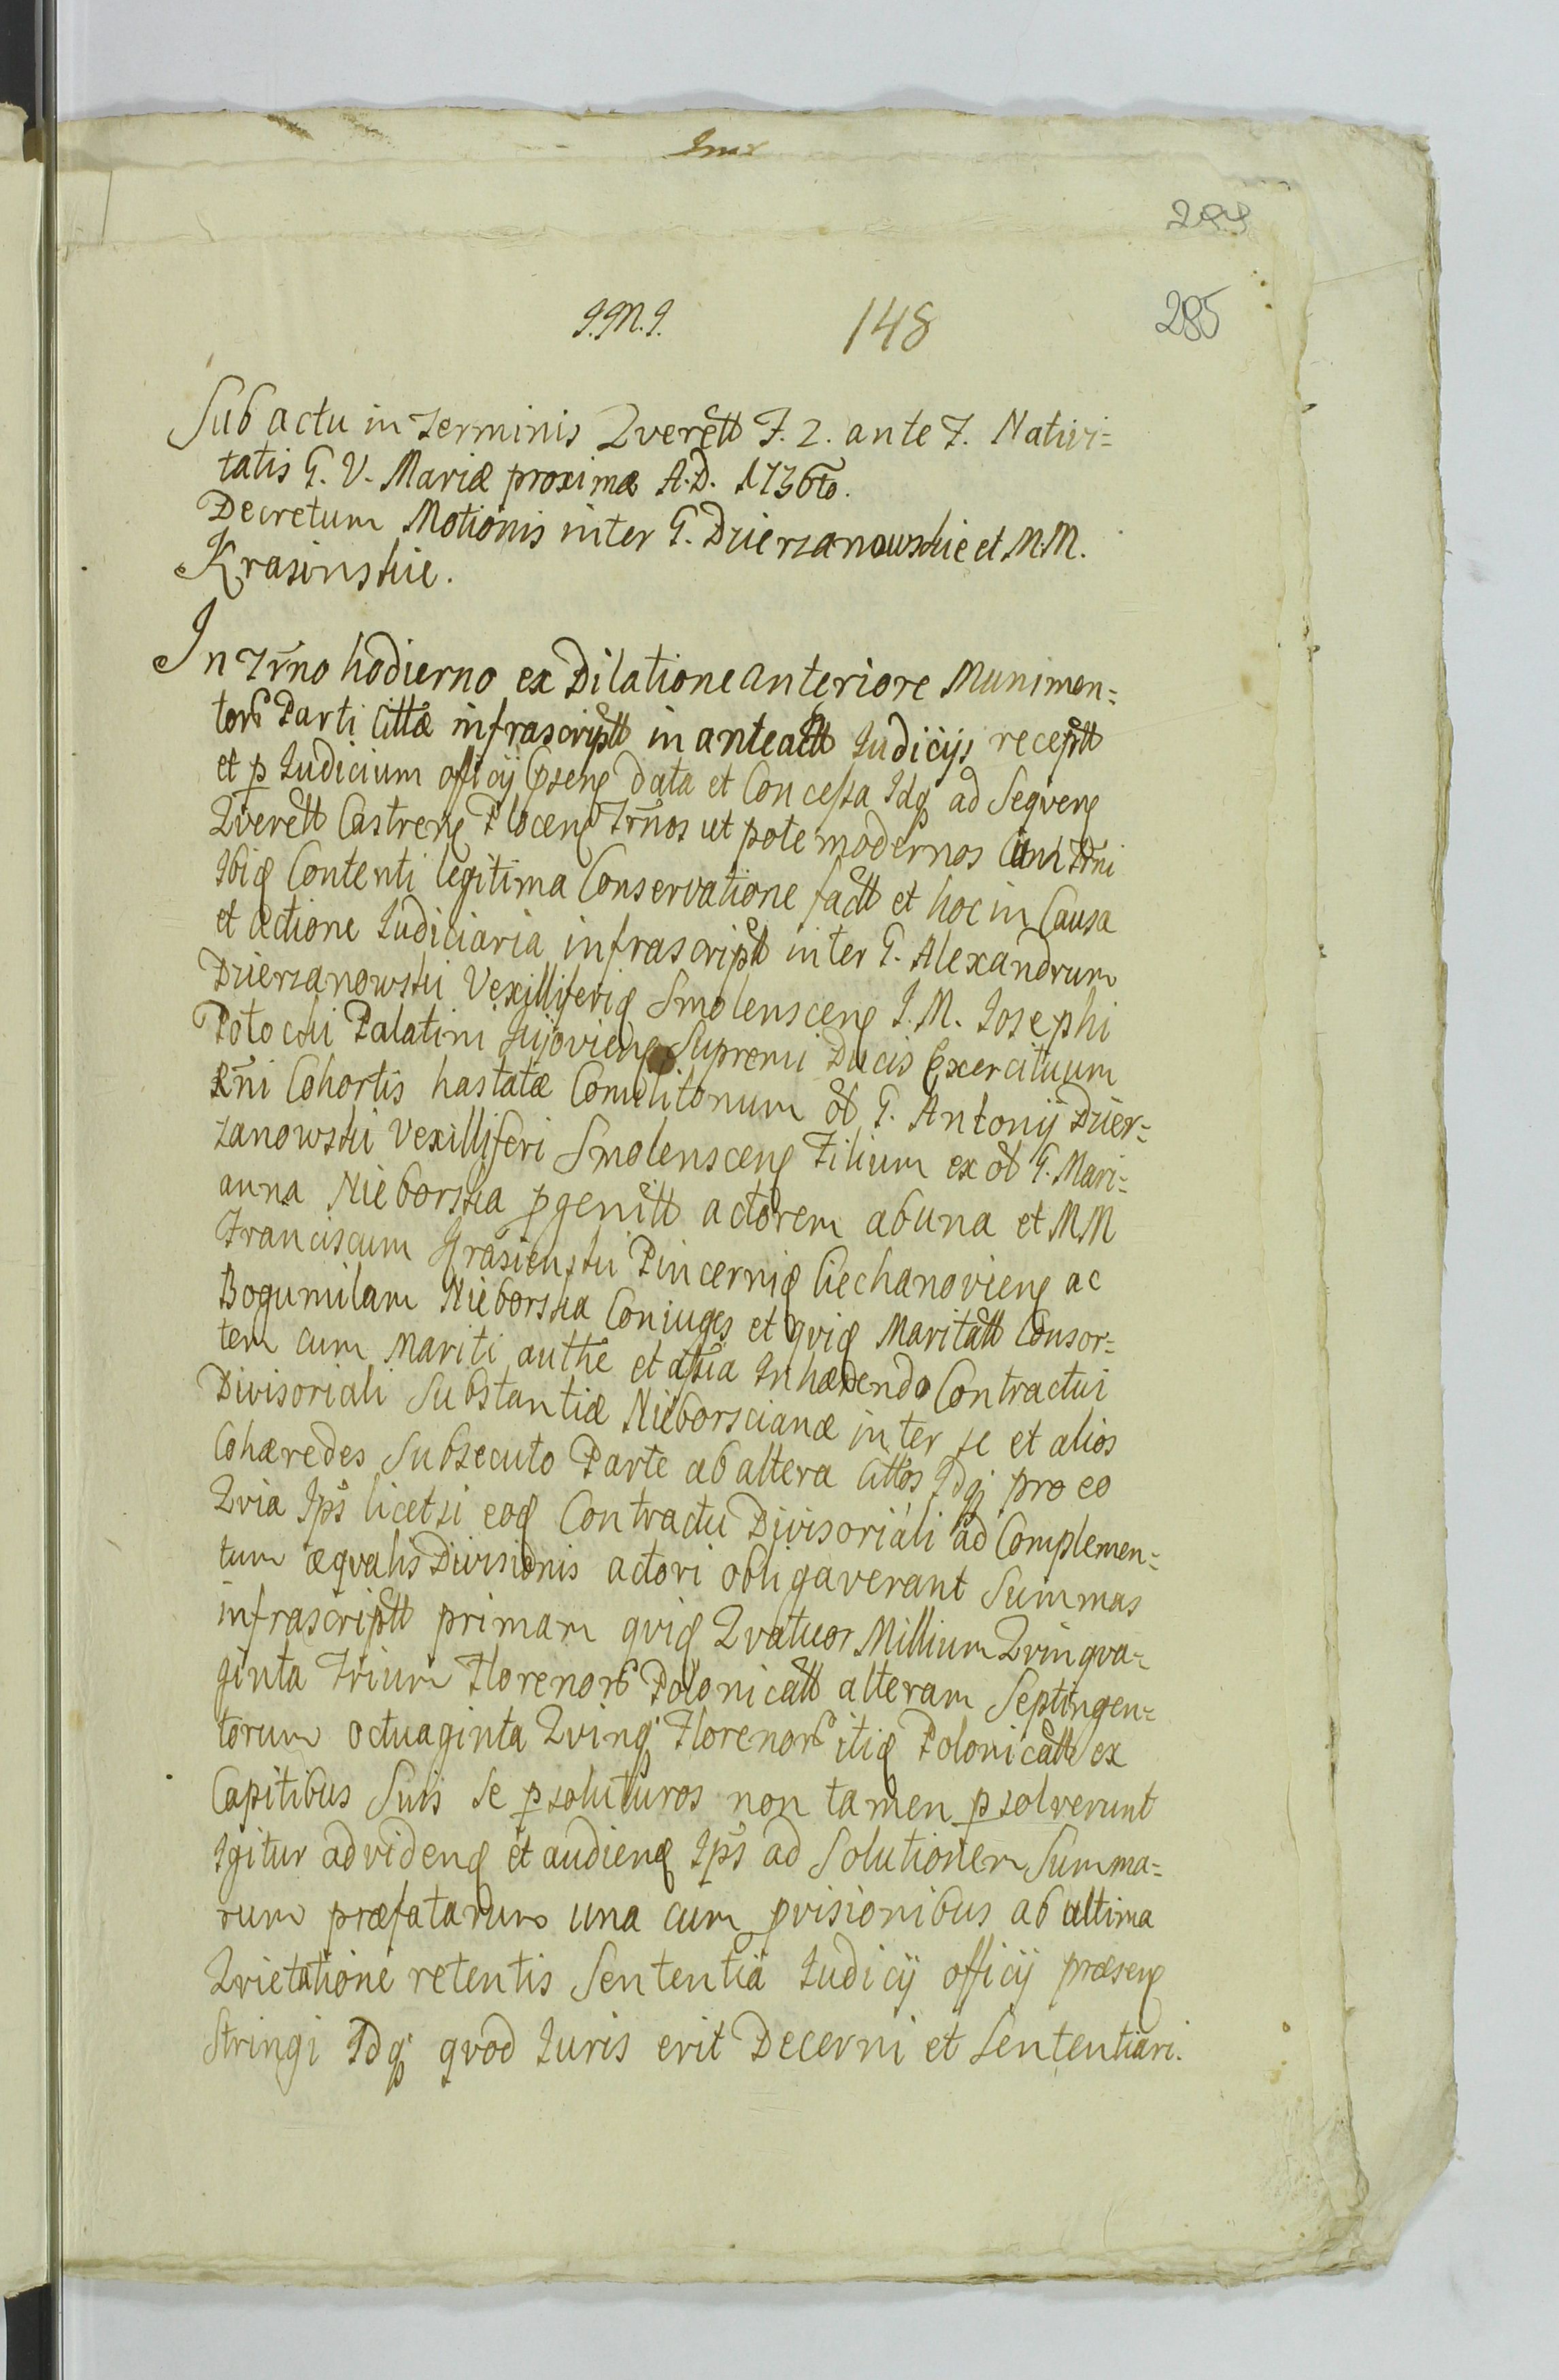 J.M.J. 148 285
Sub actu in Terminis Qverell F. 2. ante F. Nativi=
tatis G. V. Mariæ proximæ A.D. 1736to.
Decretum Motionis inter G. Dzierzanowskie et M.M.
Krasinskie.
In Trno hodierno ex Dilatione anteriore Munimen=
tor Parti Cittæ infrascriptt in anteactt Judicijs receptt
et p Judicium officij Psens data et Concessa Idq ad Seqvens
Qverell Castrens Plocens Trnos ut pote modernos Cum Trni
Ibiq Contenti legitima Conservatione factt et hoc in Causa
et actione Judiciaria infrascriptt inter G. Alexandrum
Dzierzanowski Vexilliferiq Smolenscens I.M. Josephi
Potocki Palatini Kijoviens Supremi Ducis Exercituum
Rni Cohortis hastatæ Comilitonum ol G. Antonij Dzier=
zanowski Vexilliferi Smolenscens Filium ex ol G. Mari=
anna Nieborska pgenitt actorem ab una et MM
Franciscum Krasienski Pincerniq Ciechanoviens ac
Bogumilam Nieborska Coniuges et qviq Maritatt Consor=
tem cum Mariti authe et assia Inhærendo Contractui
Divisoriali Substantiæ Nieborscianæ inter se et alios
Cohæredes Subsecuto Parte ab altera Cittos Idq pro eo
Qvia Ips licet si eoq Contractu Divisoriali ad Complemen=
tum æqvalis Divisionis actori obligaverant Summas
infrascriptt primam qviq Qvatuor Millium Qvinqva=
ginta Trium Florenor Polonicatt alteram Septingen=
torum octuaginta Qvinq Florenor itiq Polonicatt ex
Capitibus Suis se psoluturos non tamen psolverunt
Igitur ad videnq et audienq Ips ad Solutionem Summa=
rum præfatarum una cum pvisionibus ab ultima
Qvietatione retentis Sententia Judicij officij præsens
Stringi Idq qvod Juris erit Decerni et Sententiari.